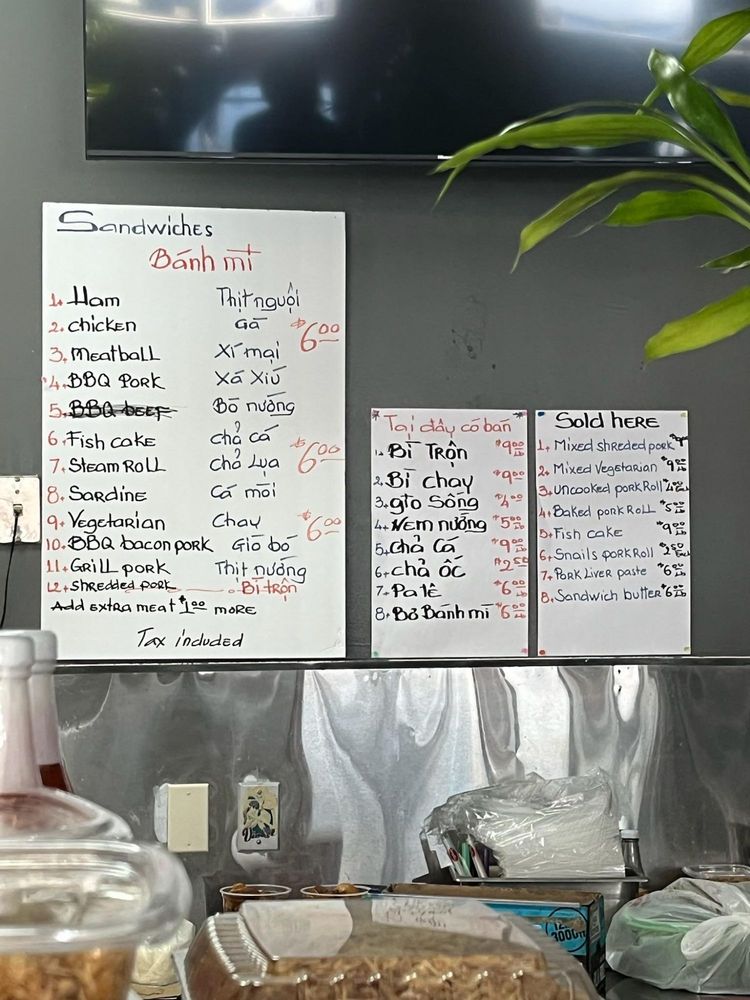 Sandwiches
Bánh mì
1. Ham Thịt nguội
2. chicken Gà $6.00
3. Meatball Xí mại
4. BBQ Pork Xá Xíu
5. BBQ beef Bò nướng
6. Fish cake chả cá $6.00
7. Steam Roll chả Lụa
8. Sardine Cá mòi
9. Vegetarian Chay $6.00
10. BBQ bacon pork Giò bó
11. Grill pork Thịt nướng
12. shredded pork Bì trộn
Add extra meat $1.00 more
Tax included
Tại đây có bán
1. Bì Trộn $9.00
2. Bì chay $9.00
3. giò sống $4.00
4. Nem nướng $5.00
5. chả Cá $9.00
6. chả ốc $2.50
7. Pa tê $6.00 Lb
8. Bơ Bánh mì $6.00 Lb
Sold HERE
1. Mixed shreded pork
2. Mixed vegetarian $9.00
3. uncooked pork Roll
4. Baked pork Roll $5.00
5. Fish cake $9.00
6. Snails pork Roll $2.50
7. Pork Liver paste $6.00 Lb
8. Sandwich butter $6.00 Lb
3000